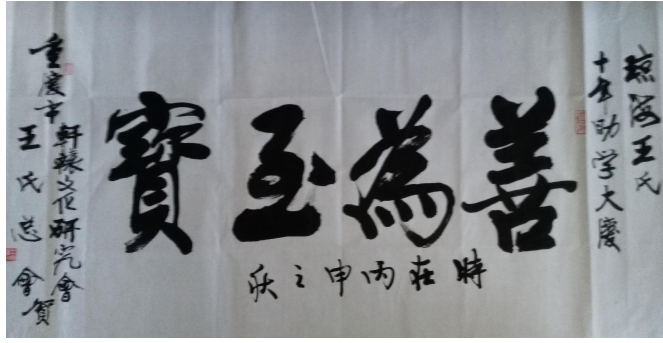 琼海王氏
十年助学大慶
善為至寶
時在丙申之秋
重慶市
軒轅文化研究會
王氏总會賀